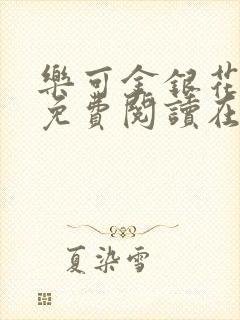 樂可金銀花
免費閱讀在
夏染雪